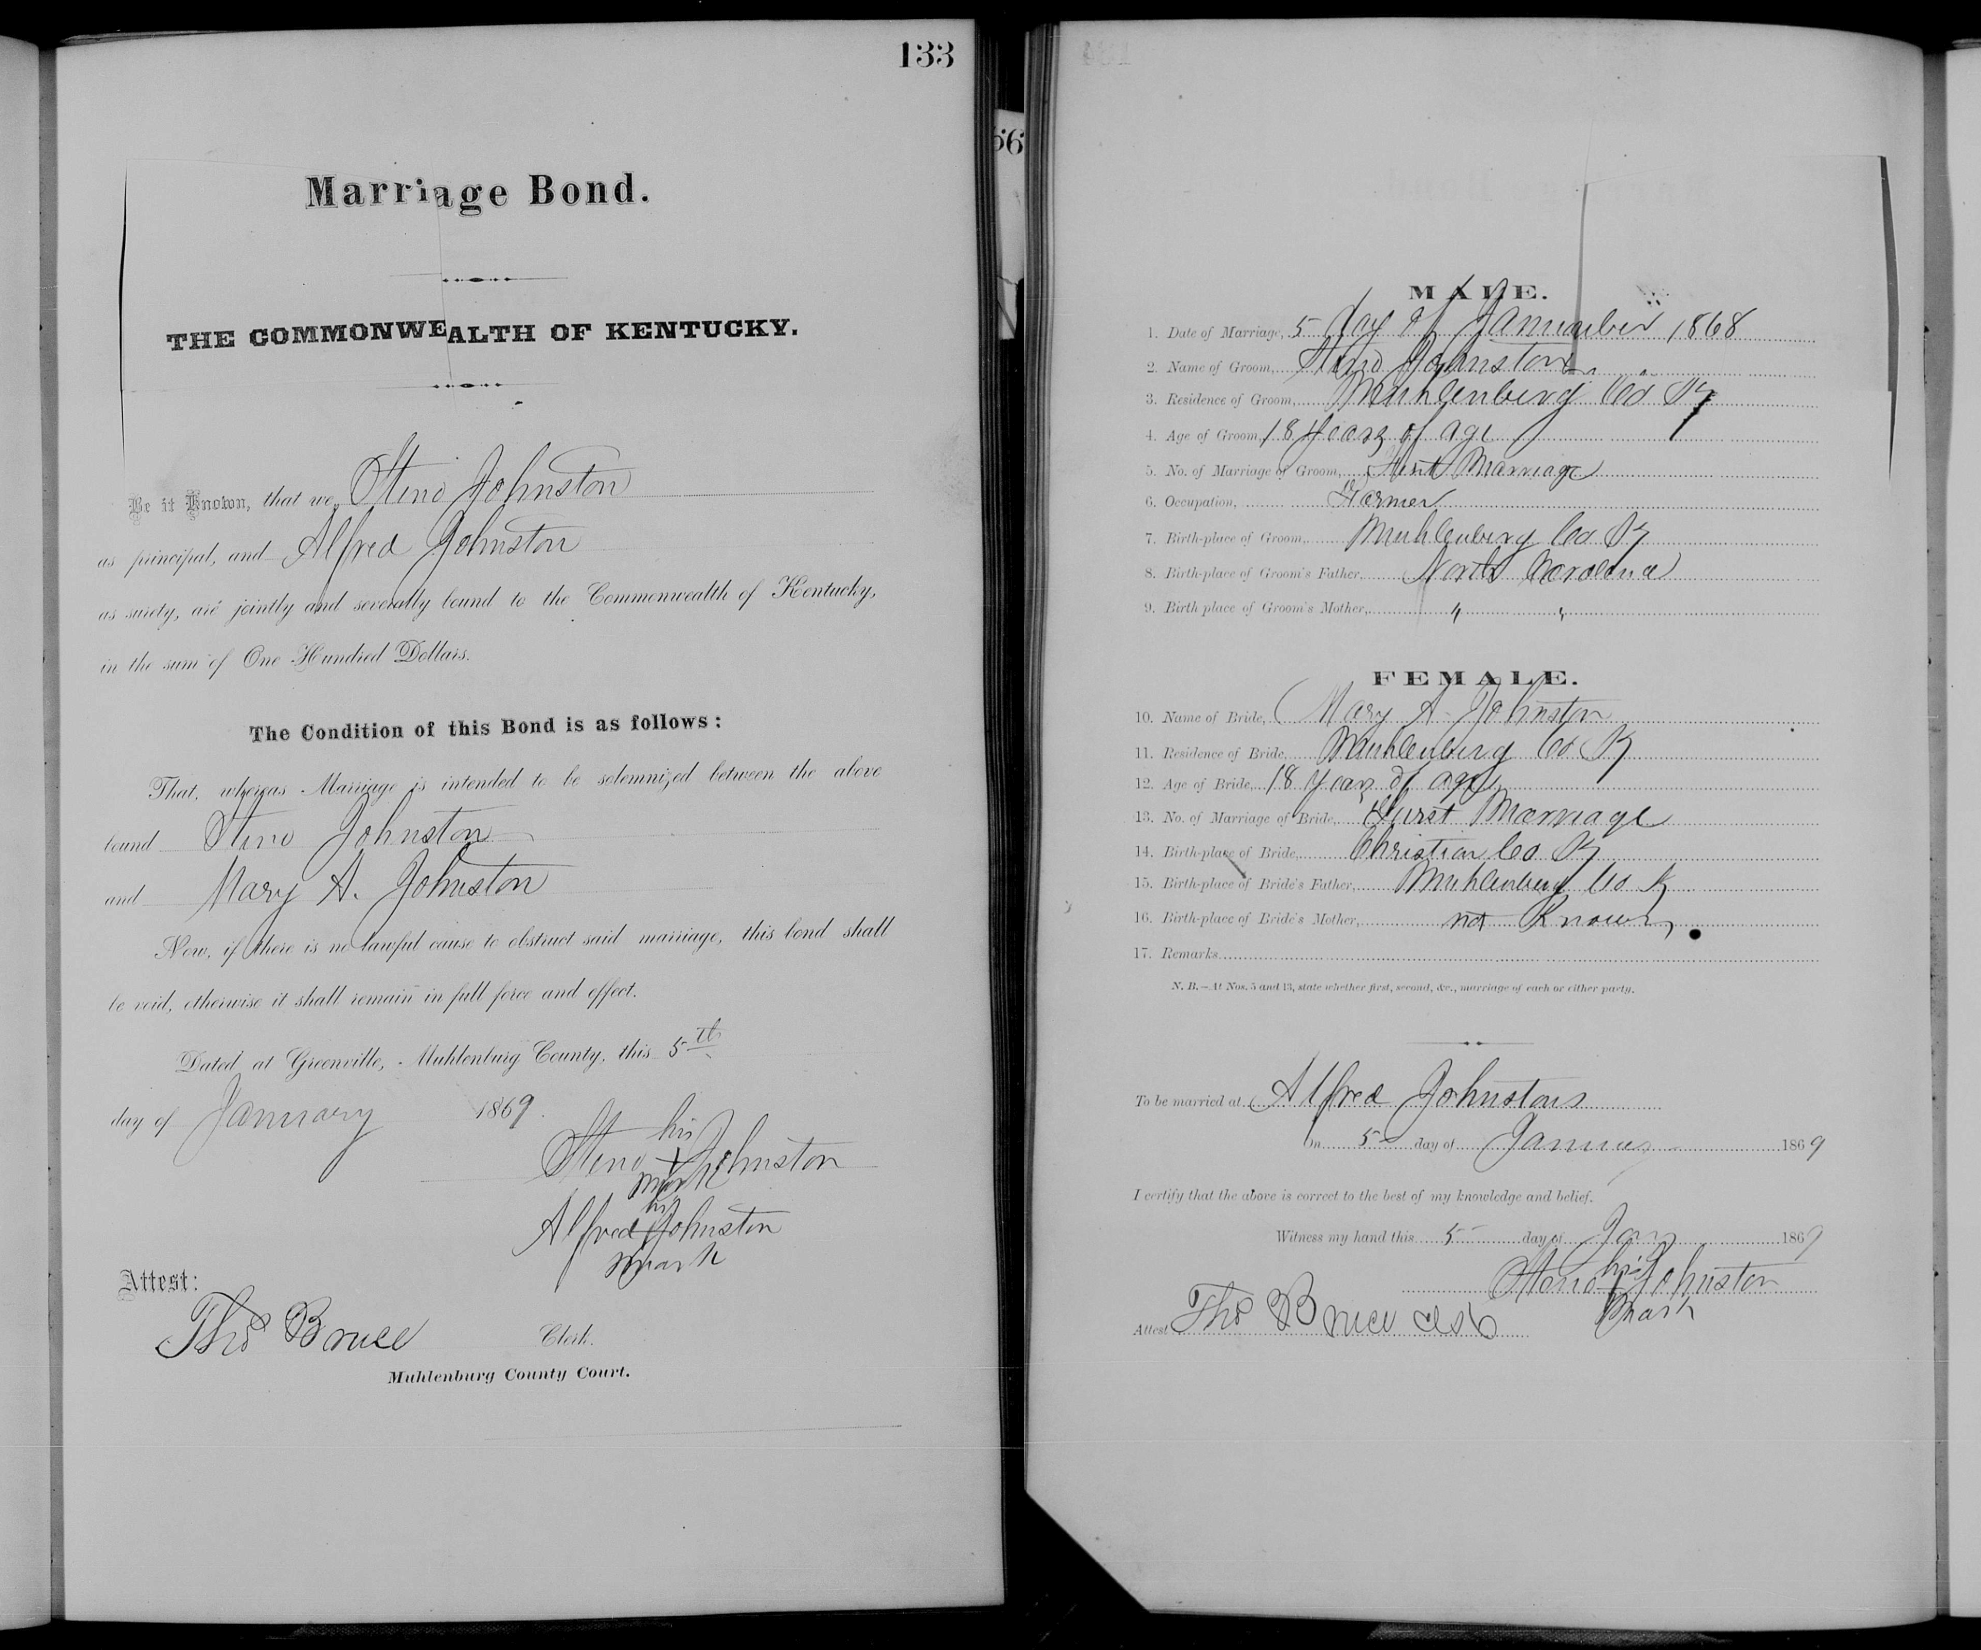 133
Marriage Bond.
THE COMMONWEALTH OF KENTUCKY.
Be it Known, that we, Steno Johnston
as principal, and Alfred Johnston
as surety, are jointly and severally bound to the Commonwealth of Kentucky,
in the sum of One Hundred Dollars.
The Condition of this Bond is as follows:
That, whereas Marriage is intended to be solemnized between the above
bound Steno Johnston
and Mary A. Johnston
Now, if there is no lawful cause to obstruct said marriage, this bond shall
be void, otherwise it shall remain in full force and effect.
Dated at Greenville, Muhlenburg County, this 5th
day of January 1869.
his
Steno X Johnston
mark
his
Alfred X Johnston
mark
Attest:
Thos Bruce Clerk.
Muhlenburg County Court.
56
MALE.
1. Date of Marriage, 5 day of 1868
2. Name of Groom, Steno Johnston
3. Residence of Groom, Muhlenberg Co Ky
4. Age of Groom, 18 years of age
5. No. of Marriage of Groom, First Marriage
6. Occupation, Farmer
7. Birth-place of Groom, Muhlenberg Co Ky
8. Birth-place of Groom's Father, North Carolina
9. Birth place of Groom's Mother, " "
FEMALE.
10. Name of Bride, Mary A. Johnston
11. Residence of Bride, Muhlenberg Co Ky
12. Age of Bride, 18 years of age
13. No. of Marriage of Bride, First Marriage
14. Birth-place of Bride, Christian Co Ky
15. Birth-place of Bride's Father, Muhlenberg Co Ky
16. Birth-place of Bride's Mother, not Known
17. Remarks
N. B.—At Nos. 5 and 13, state whether first, second, &c., marriage of each or either party.
To be married at Alfred Johnstons
On 5 day of January 1869
I certify that the above is correct to the best of my knowledge and belief.
Witness my hand this 5 day of Jan 1869
his
Steno X Johnston
mark
Attest Thos Bruce